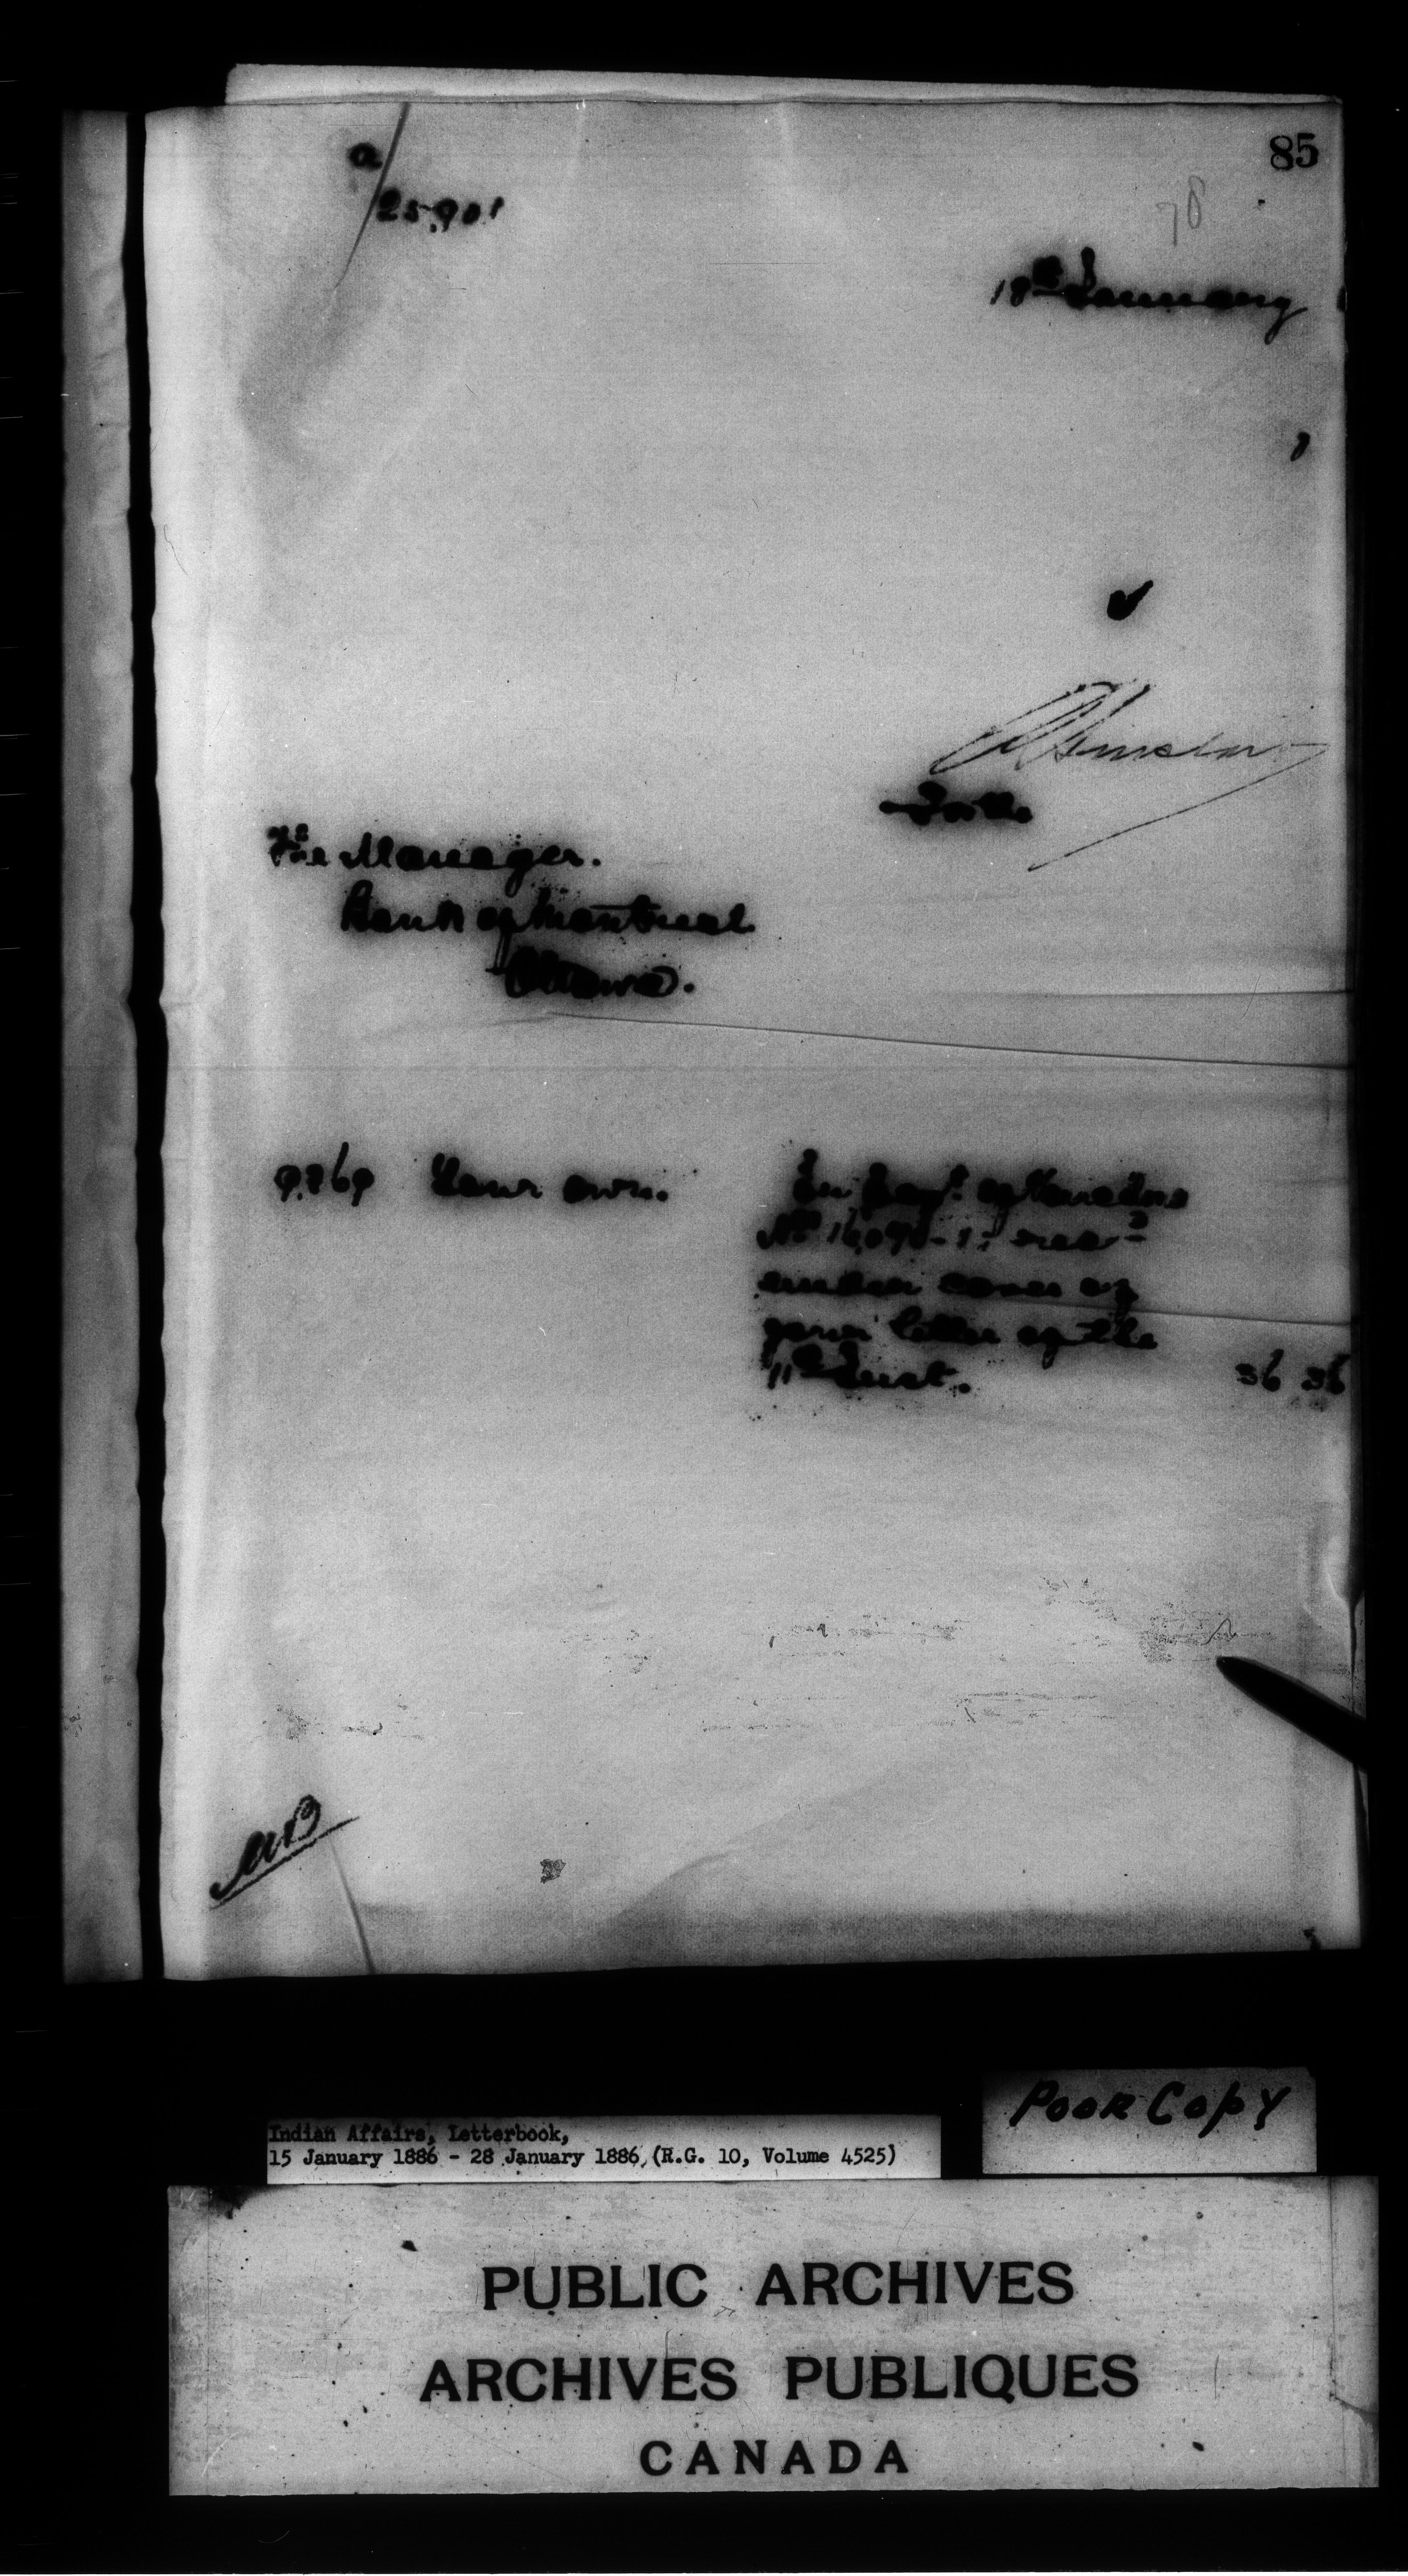 85
a/
25,901
78
18th January
R Sinclair
For the
The Manager.
Bank of Montreal
Ottawa.
9769 Your own. In paym't of
No 16,090 - recd
under cover of
your letter of the
11th Inst. 36 36
Indian Affairs, Letterbook,
15 January 1886 - 28 January 1886, (R.G. 10, Volume 4525)
Poor Copy
PUBLIC ARCHIVES
ARCHIVES PUBLIQUES
CANADA